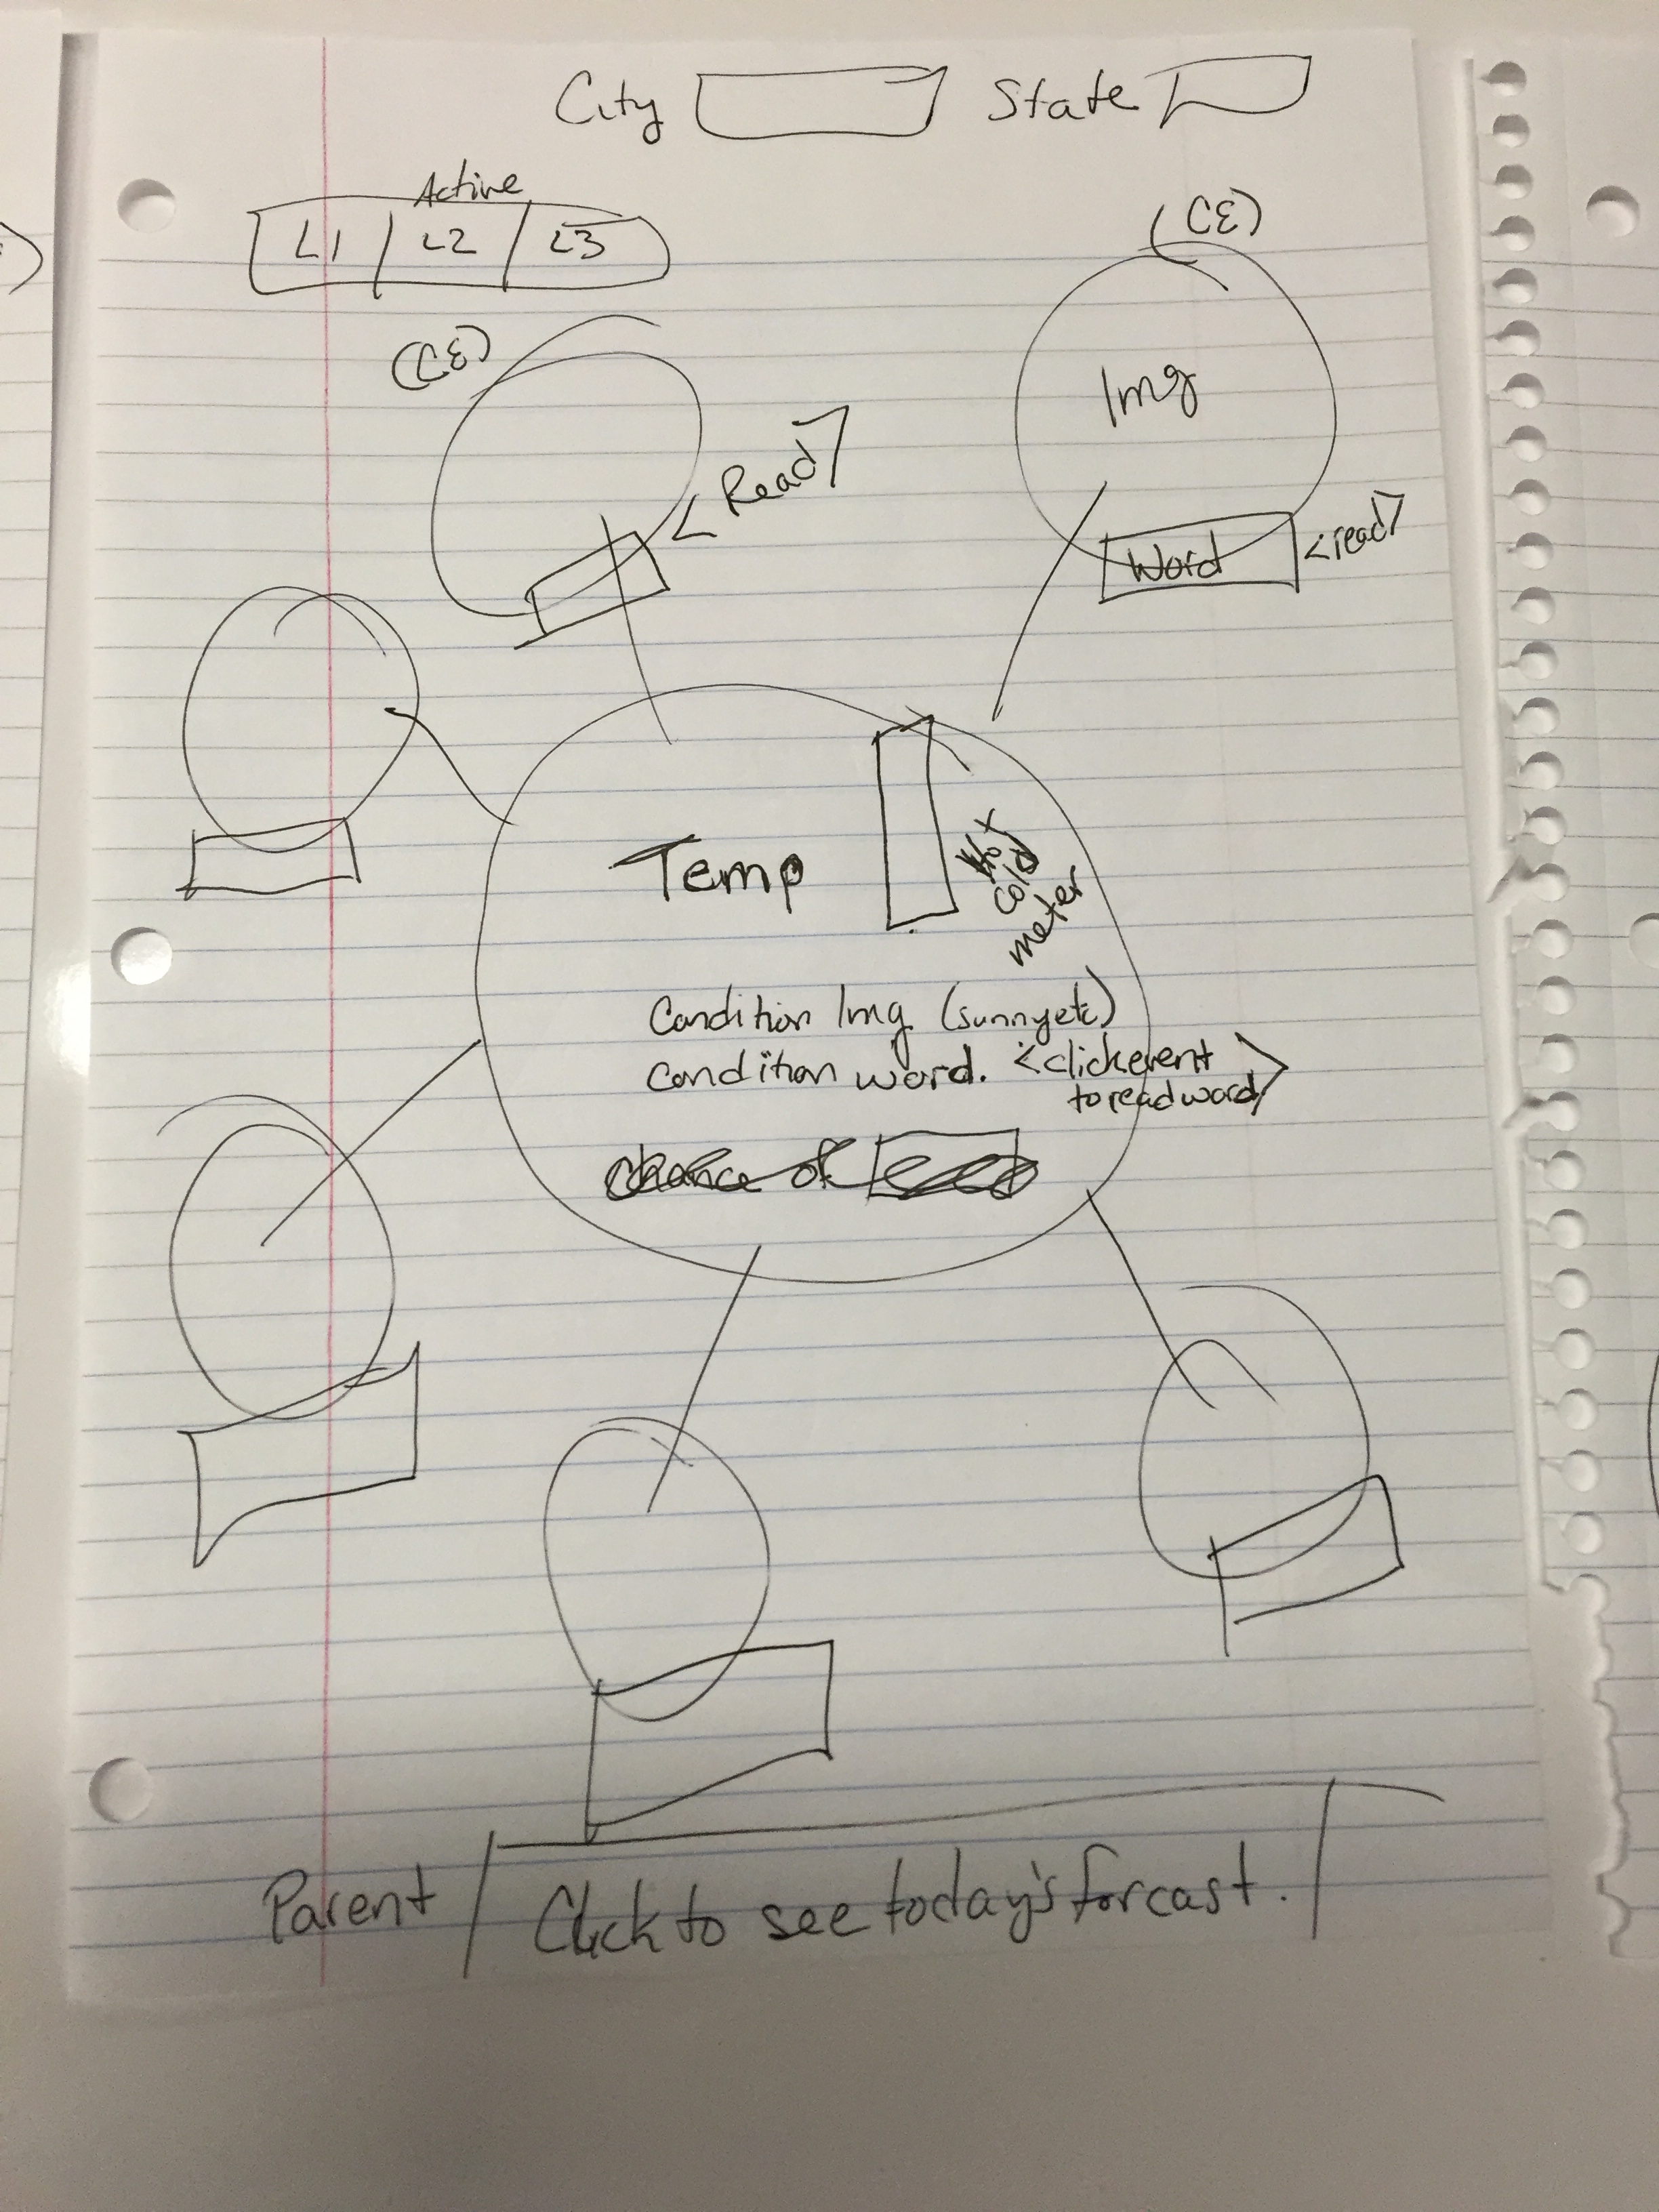 City State
Active
L1 L2 L3
(CE)
(CE)
Img
<Read>
Word <read>
Temp
Hot
cold
meter
Condition Img (sunny etc)
condition word. <click event
to read word>
chance of
Parent
Click to see today's forcast.